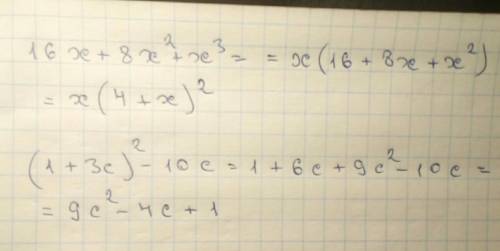 16x + 8x² + x³ = = x(16 + 8x + x²)
= x(4 + x)²
(1 + 3c)² - 10c = 1 + 6c + 9c² - 10c =
= 9c² - 4c + 1